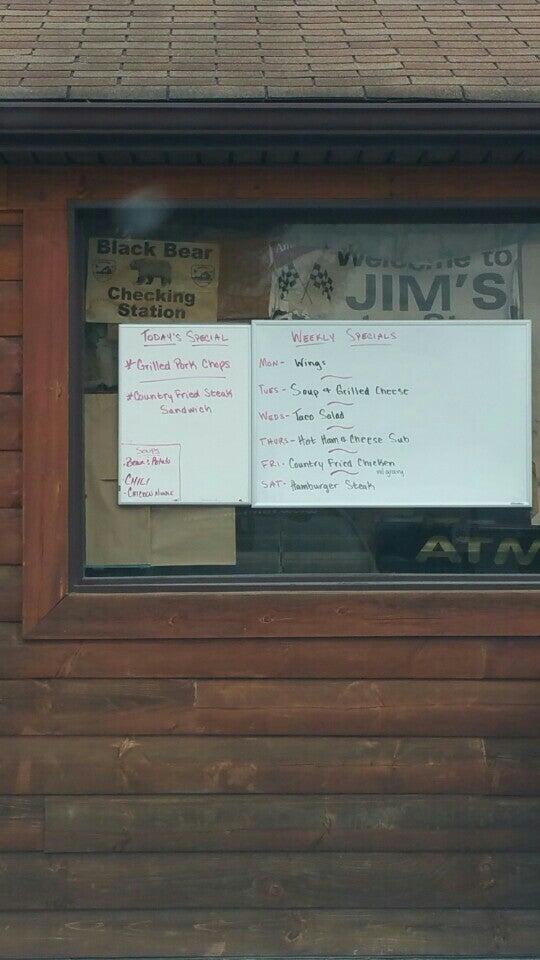 Black Bear
Checking
Station
Welcome to
JIM'S
TODAY'S SPECIAL
*Grilled Pork Chops
*Country Fried Steak
Sandwich
SOUPS
•Bean & Potato
•CHILI
•CHICKEN NOODLE
WEEKLY SPECIALS
MON- Wings
TUES- Soup & Grilled Cheese
WEDS- Taco Salad
THURS- Hot Ham & Cheese Sub
FRI- Country Fried Chicken
w/gravy
SAT- Hamburger Steak
ATM